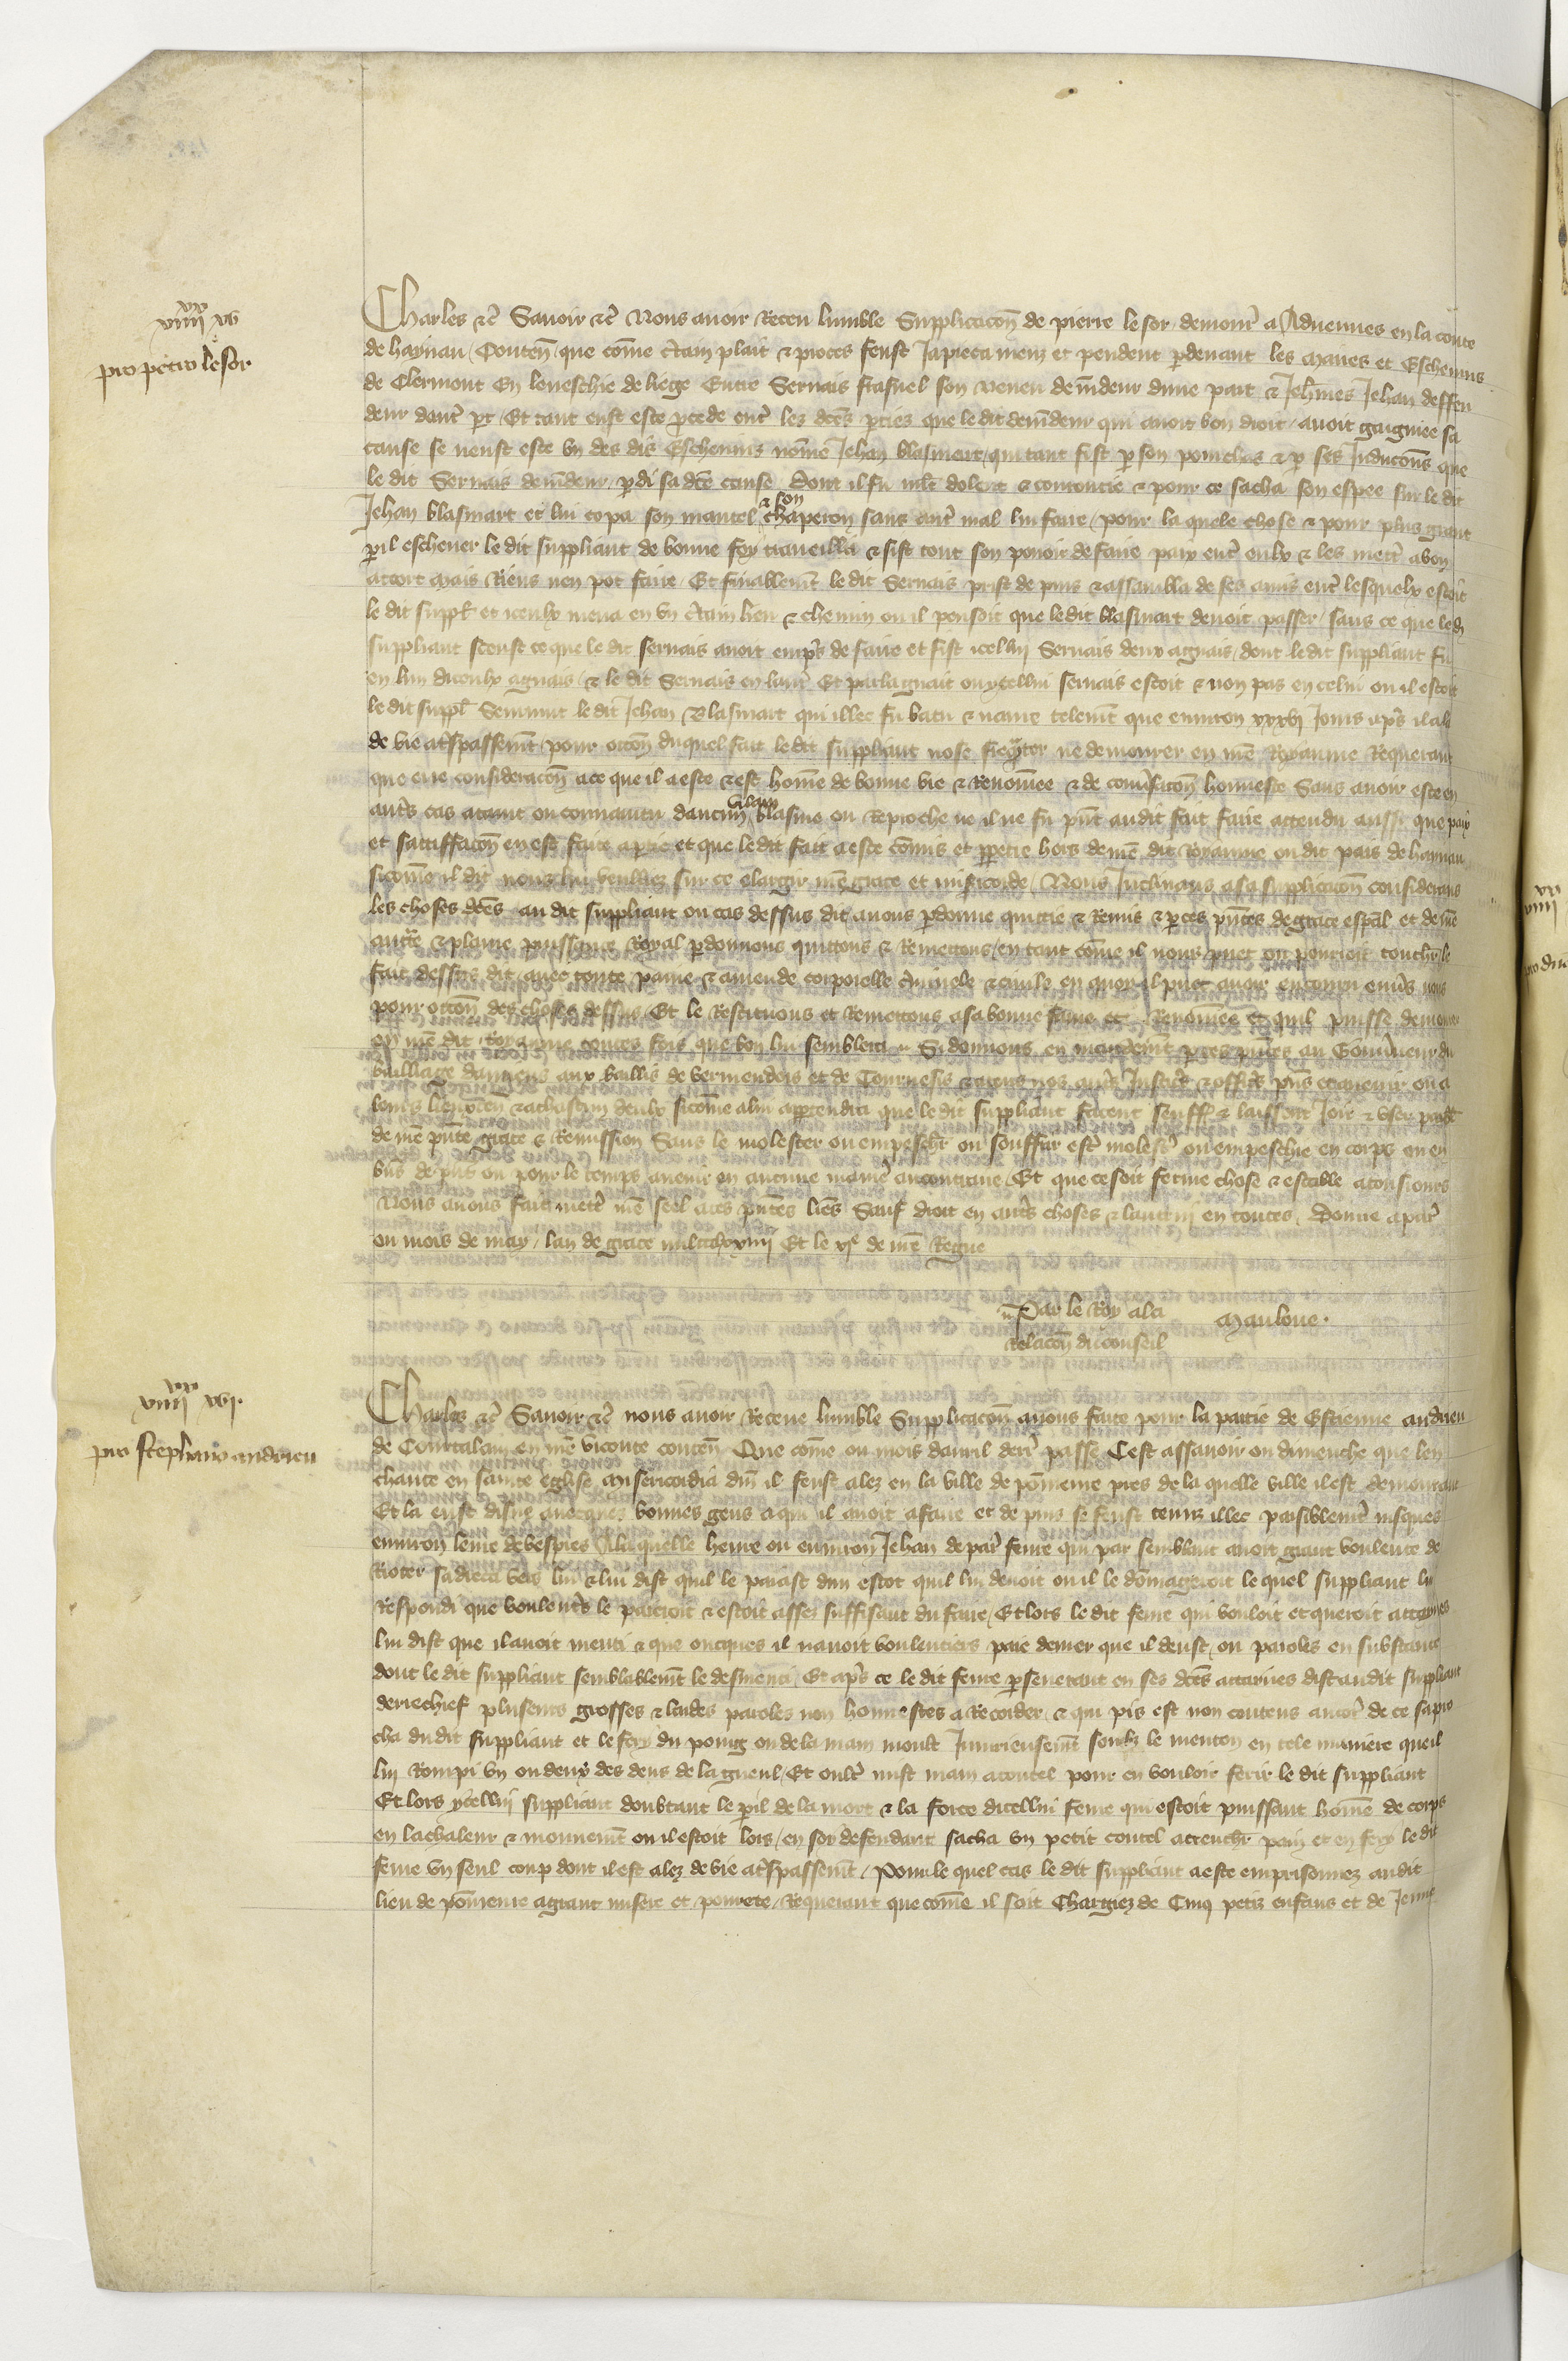 iiiixx xv
pro petro le sor
Charles etc Savoir etc Nous avoir Receu humble Supplicacon de pierre le sor demour a Advennes en la conte
de haynau Conten que come certain plait & proces feust Ja pieca meuz et pendent pardevant les Maires et Eschevins
de Clermont En leveschie de liege Entre Servais son neveu demdeur dune part & Jehan deffen
deur dautre pt Et tant eust este procede entre les dces pties que le dit demdeur qui avoit bon droit avoit gaignee sa
cause se neust este un des dis Eschevins nome Jehan blasmart qui tant fist par son pourchas & par ses Inducons que
le dit Servais demdeur perdi sa dce cause Dont il fu mlt dolent & courroucie & pour ce sacha son espee sur le dit
Jehan blasmart et lui copa son mantel & son chaperon sans autre mal lui faire pour la quele chose & pour plus grant
peril eschever le dit suppliant de bonne foy traveilla & fist tout son povoir de faire paix entre eulx & les mettre a bon
acort Mais Riens nen pot faire Et finablement le dit Servais prist de puis & assambla de ses amis entre lesquelx estoit
le dit suppl et iceulx mena en un certain lieu & chemin ou il pensoit que le dit blasmart devoit passer sans ce que le d
suppliant sceust ce que le dit servais avoit empris de faire et fist icellui Servais deux aguais dont le dit suppliant fu
en lun diceulx aguais & le dit Servais en lautre Et par laguait ou ycellui servais estoit & non pas en celui ou il estoit
le dit suppl Seurvint le dit Jehan Blasmart qui illec fu batu & navre telement que environ xxxvi Jours apres il ala
de vie a trespassement pour occon duquel fait le dit suppliant nose frequenter ne demourer en nre Royaume Requerant
que eue consideracon a ce que il a este & est home de bonne vie & Renomee & de conversacon honneste Sans avoir este en
autres cas ataint ou convaincu daucun vilain blasme ou Reproche ne il ne fu point audit fait faire attendu aussi que paix
et satiffacon en est faite a partie et que le dit fait a este comis et perpetre hors de nre dit Royaume ou dit pais de haynau
sicome il dit nous lui veuillez sur ce elargir nre grace et misericorde Nous Inclinans a sa supplicacon considerans
les choses dces au dit suppliant ou cas dessus dit avons pardonne quittie & Remis & par ces pntes de grace espal et de nre
auctre & plaine puissance Royal pardonnons quittons & Remettons en tant come il nous puet ou pourroit touchier le
fait dessus dit avec toute paine & amende corporelle criminele & civile en quoy il puet avoir encouru envers nous
pour occon des choses dessus Et le Restituons et Remettons a sa bonne fame et Renomee et quil puisse demourer
en nre dit Royaume toutes fois que bon lui semblera Si donnons en mandement par ces pntes au Gouverneur du
bailliage damiens aux baillis de vermendois et de Tournesis & a tous nos autres Justiciers & officiers presens et avenir ou a
leurs lieuxten & a chascun deulx sicome a lui appartendra que le dit suppliant facent seuffrent & laissent Joir & user paisiblement
de nre pnte grace & Remission Sans le molester ou empeschier ou souffrir estre moleste ou empeschie en corps ou en
biens de pnt ou pour le temps avenir en aucune maniere au contraire Et que ce soit ferme chose & estable a tousjours
Nous avons fait mettre nre seel a ces pntes lres Sauf droit en autres choses & lautrui en toutes Donne a paris
ou mois de may lan de grace mil Et le xie de nre Regne
Par le Roy a la
Relacon du conseil Mauloue
iiiixx xvi
pro stephano andrieu
Charles etc Savoir etc nous avoir Receue humble Supplicacon a nous faite pour la partie de Estienne andrieu
de Courtalain en nre viconte conten Que come ou mois davril derr passe Cest assavoir ou dimenche que len
chante en sainte eglise Misericordia dni il feust alez en la ville de pres de la quelle ville il est demourant
Et la eust disne avecques bonnes gens a qui il avoit a faire et de puis se feust tenuz illec paisiblement jusques
environ leure de vespres A la quelle heure ou environ Jehan de par ferre qui par semblant avoit grant voulente de
Rioter sadreca vers lui & lui dist quil le paiast dun escot quil lui devoit ou il le domageroit le quel suppliant lui
Respondi que voulentiers le paieroit & estoit assez suffisant du faire Et lors le dit ferre qui vouloit et queroit attaynes
lui dist que il avoit menti & que oncques il navoit voulentiers paie denier que il deust ou paroles en substance
dont le dit suppliant semblablement le desmenti Et apres ce le dit ferre perseverant en ses dces attaines dist audit suppliant
derrechief pluseurs grosses & laides paroles non honnestes a Recorder & qui pis est non contens encore de ce sapro
cha du dit suppliant et le fery du poing ou de la main moult Injurieusement soubz le menton en tele maniere que il
lui Rompi un ou deux des dens de la gueul Et oultre mist main a coutel pour en vouloir ferir le dit suppliant
Et lors ycellui suppliant doubtant le peril de la mort & la force dicellui ferre qui estoit puissant home de corps
en la chaleur & mouvement ou il estoit lors en soy defendant sacha un petit coutel a trenchier pain et en fery le dit
ferre un seul coup dont il est alez de vie a trespassement Pour le quel cas le dit suppliant a este emprisonnez audit
lieu de a grant misere et povrete Requerant que come il soit Chargiez de Cinq petiz enfans et de Jeune